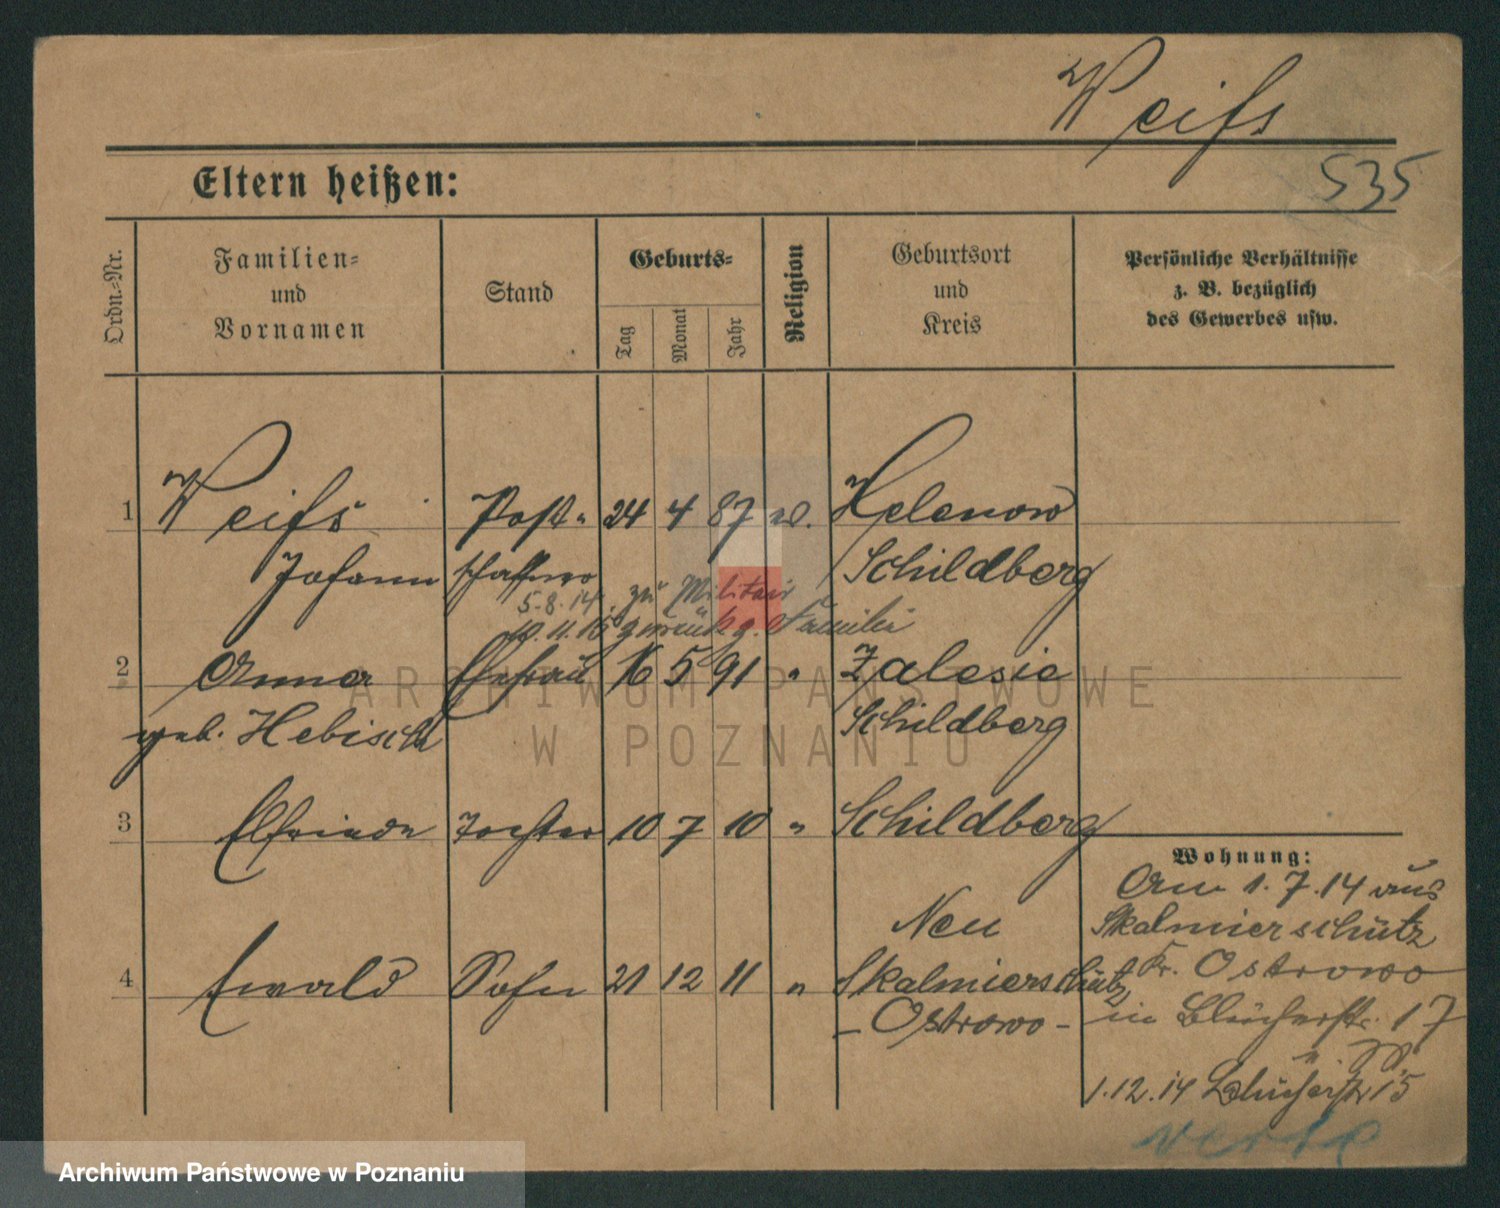 Weiſs
535
Eltern heißen:
Ordn.=Nr.
Familien=
und
Vornamen
Stand
Geburts=
Tag
Monat
Jahr
Religion
Geburtsort
und
Kreis
Persönliche Verhältnisse
z. B. bezüglich
des Gewerbes usw.
1 Weiſs Post- 24 4 87 ev. Helenow
Johann schaffner Schildberg
5.8.14. zu Militair
10.11.15 zurück z. Familie
2 Anna Ehefrau 16 5 91 " Zalesie
geb. Hebisch Schildberg
3 Elfriede Tochter 10 7 10 " Schildberg
Wohnung:
Am 1.7.14 aus
Neu Skalmierschütz
4 Ewald Sohn 21 12 11 " Skalmierschütz Kr. Ostrowo
- Ostrowo - in Blücherstr. 17
1.12.14 Blücherstr 15
verte
ARCHIWUM PAŃSTWOWE
W POZNANIU
Archiwum Państwowe w Poznaniu